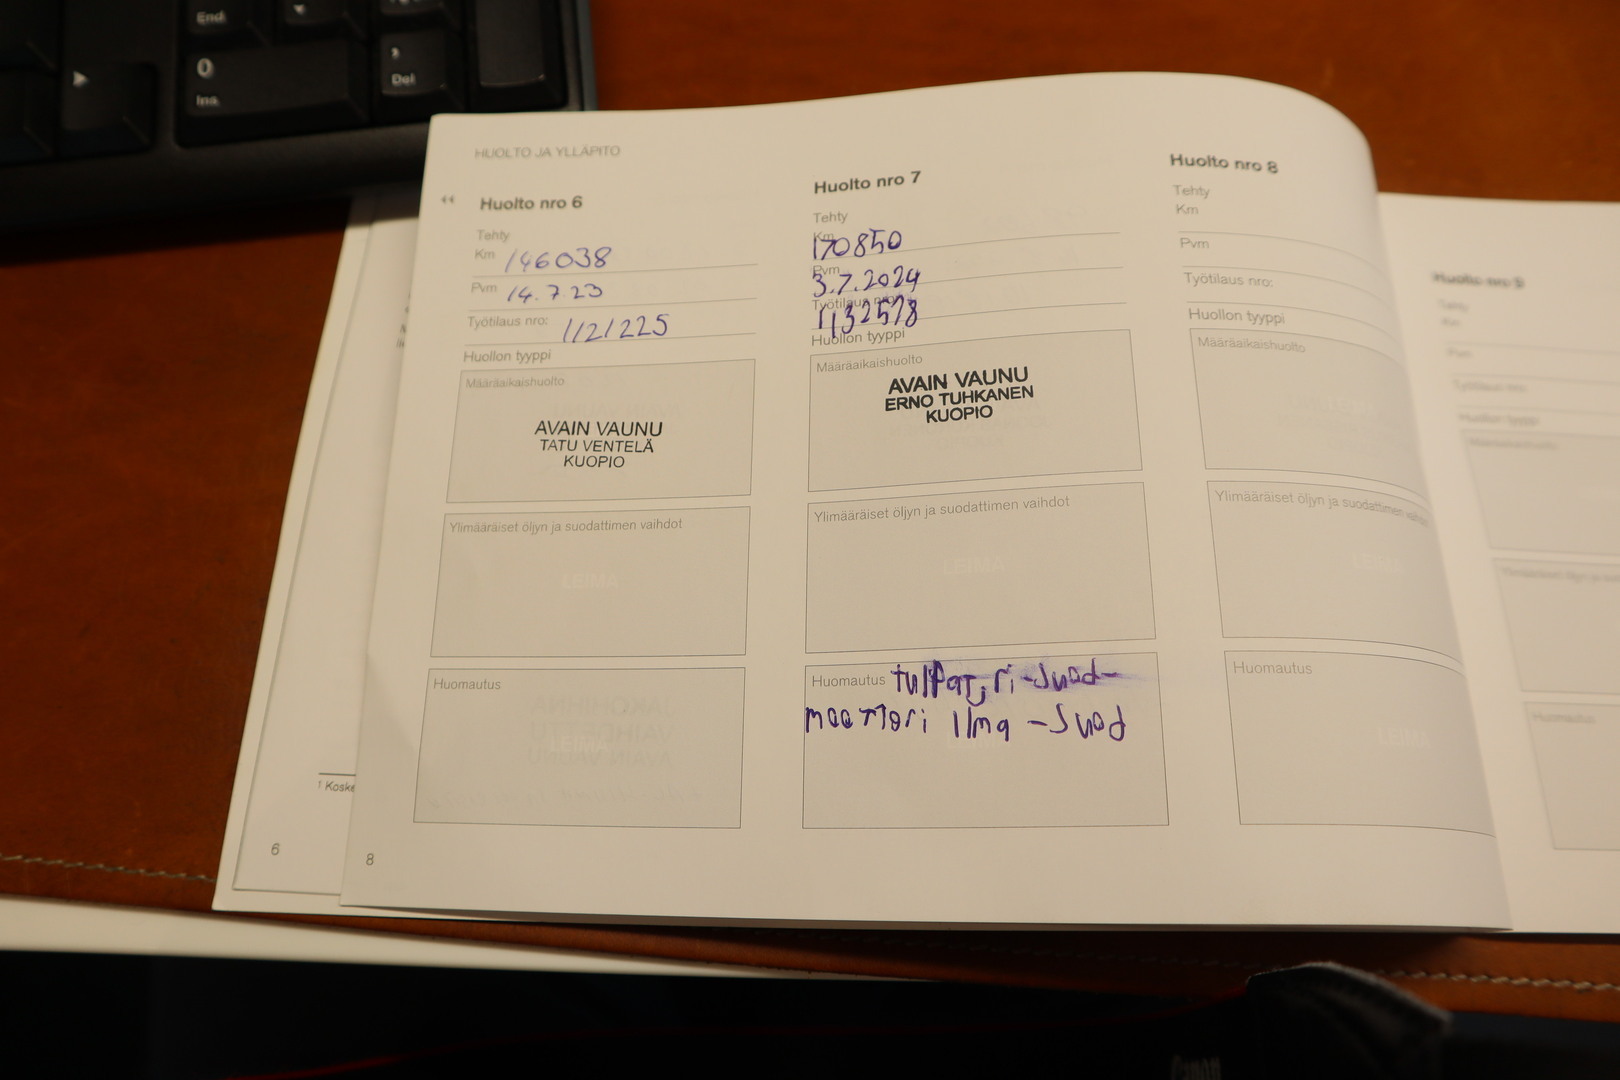 End
0
Ins
,
Del
HUOLTO JA YLLÄPITO
Huolto nro 6
Tehty
Km 146038
Pvm 14.7.23
Työtilaus nro: 1121225
Huollon tyyppi
Määräaikaishuolto
AVAIN VAUNU
TATU VENTELÄ
KUOPIO
Ylimääräiset öljyn ja suodattimen vaihdot
LEIMA
Huomautus
LEIMA
8
Huolto nro 7
Tehty
Km 170850
Pvm 3.7.2024
Työtilaus nro: 1132578
Huollon tyyppi
Määräaikaishuolto
AVAIN VAUNU
ERNO TUHKANEN
KUOPIO
Ylimääräiset öljyn ja suodattimen vaihdot
LEIMA
Huomautus tulpat, ri-suod-
moottori ilma-suod
Huolto nro 8
Tehty
Km
Pvm
Työtilaus nro:
Huollon tyyppi
Määräaikaishuolto
Ylimääräiset öljyn ja suodattimen
LEIMA
Huomautus
Huolto nro 9
Tehty
Km
Pvm
Työtilaus nro:
Huollon tyyppi
Määräaikaishuolto
Huomautus
LEIMA
1 Koske
6
Canon